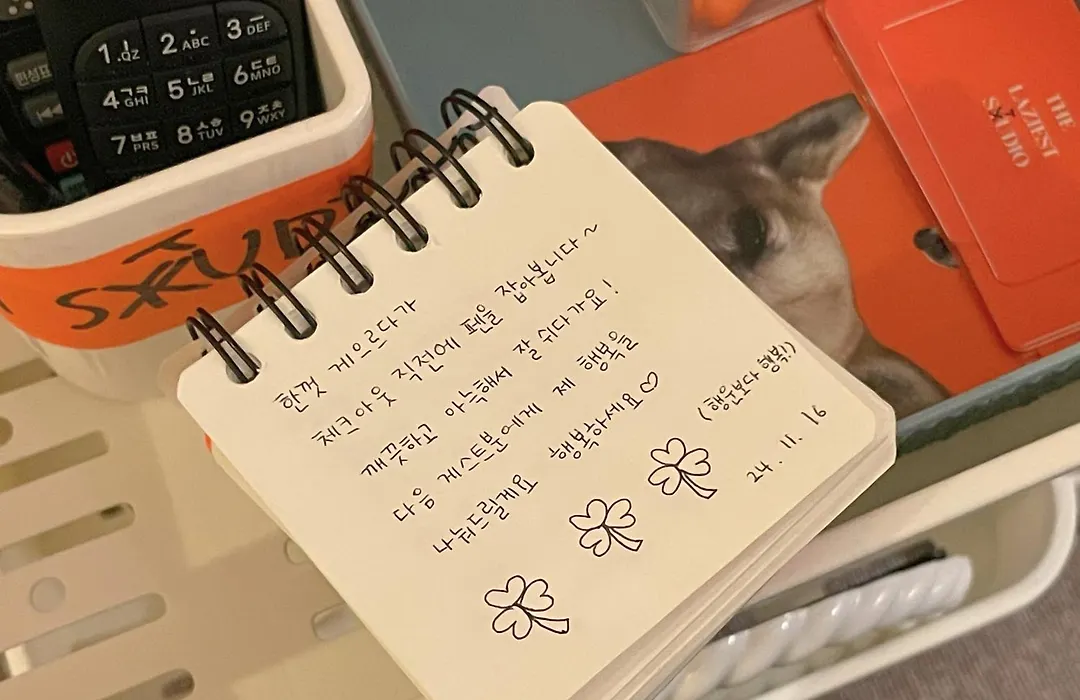 편성표
1.ㅣQZ
2·ABC
3ㅡDEF
4ㄱㅋGHI
5ㄴㄹJKL
6ㄷㅌMNO
7ㅂㅍPRS
8ㅅㅎTUV
9ㅈㅊWXY
한껏 게으르다가
체크아웃 직전에 펜을 잡아봅니다~
깨끗하고 아늑해서 잘 쉬다가요!
다음 게스트분에게 제 행복을
나눠드릴게요 행복하세요♡
(행운보다 행복!)
24. 11. 16
THE
LAZIEST